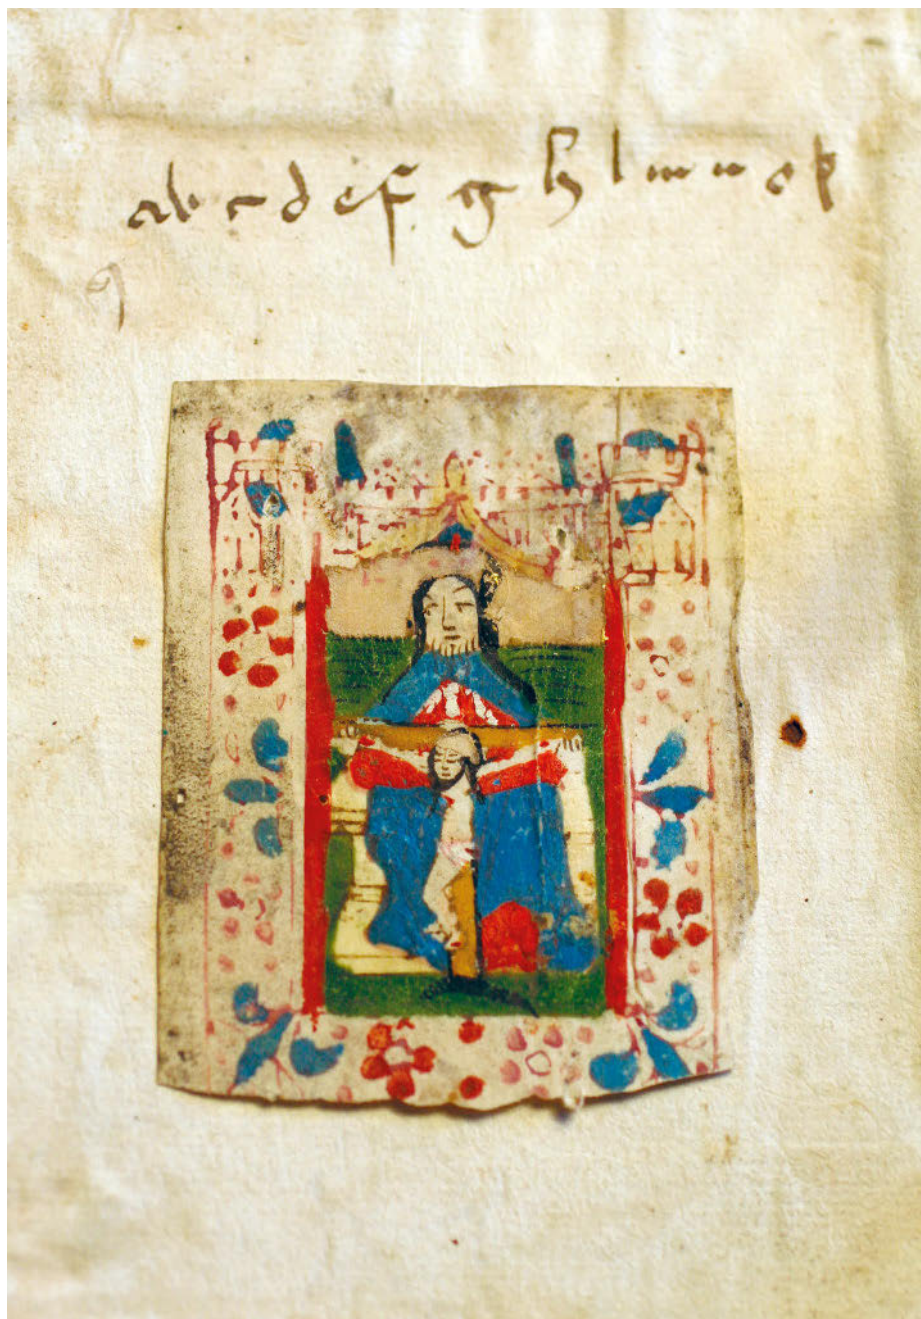 a b c d e f g h l m n o p
q